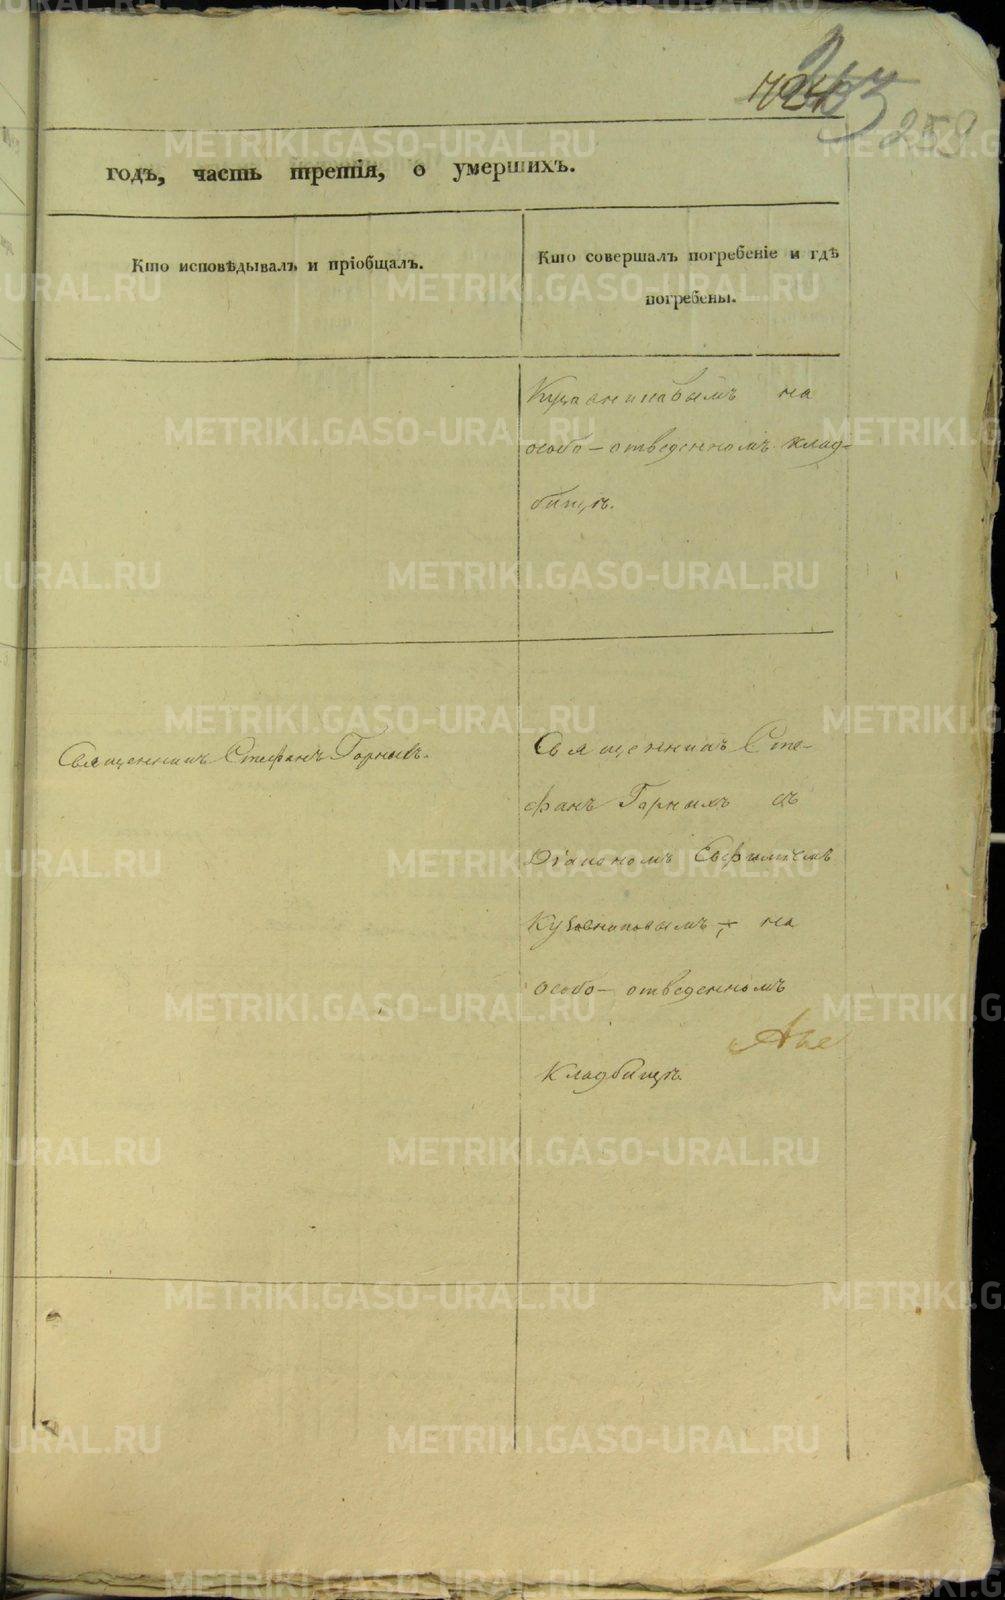 259
годъ, часть третія, о умершихъ.
Кто исповѣдывалъ и пріобщалъ.
Кто совершалъ погребеніе и гдѣ
погребены.
на
особо-отведенномъ клад-
бищѣ.
Священникъ Стефанъ Горныхъ.
Священникъ Сте-
фанъ Горныхъ съ
Діакономъ Евфиміемъ
на
особо-отведенномъ
Кладбищѣ.
METRIKI.GASO-URAL.RU